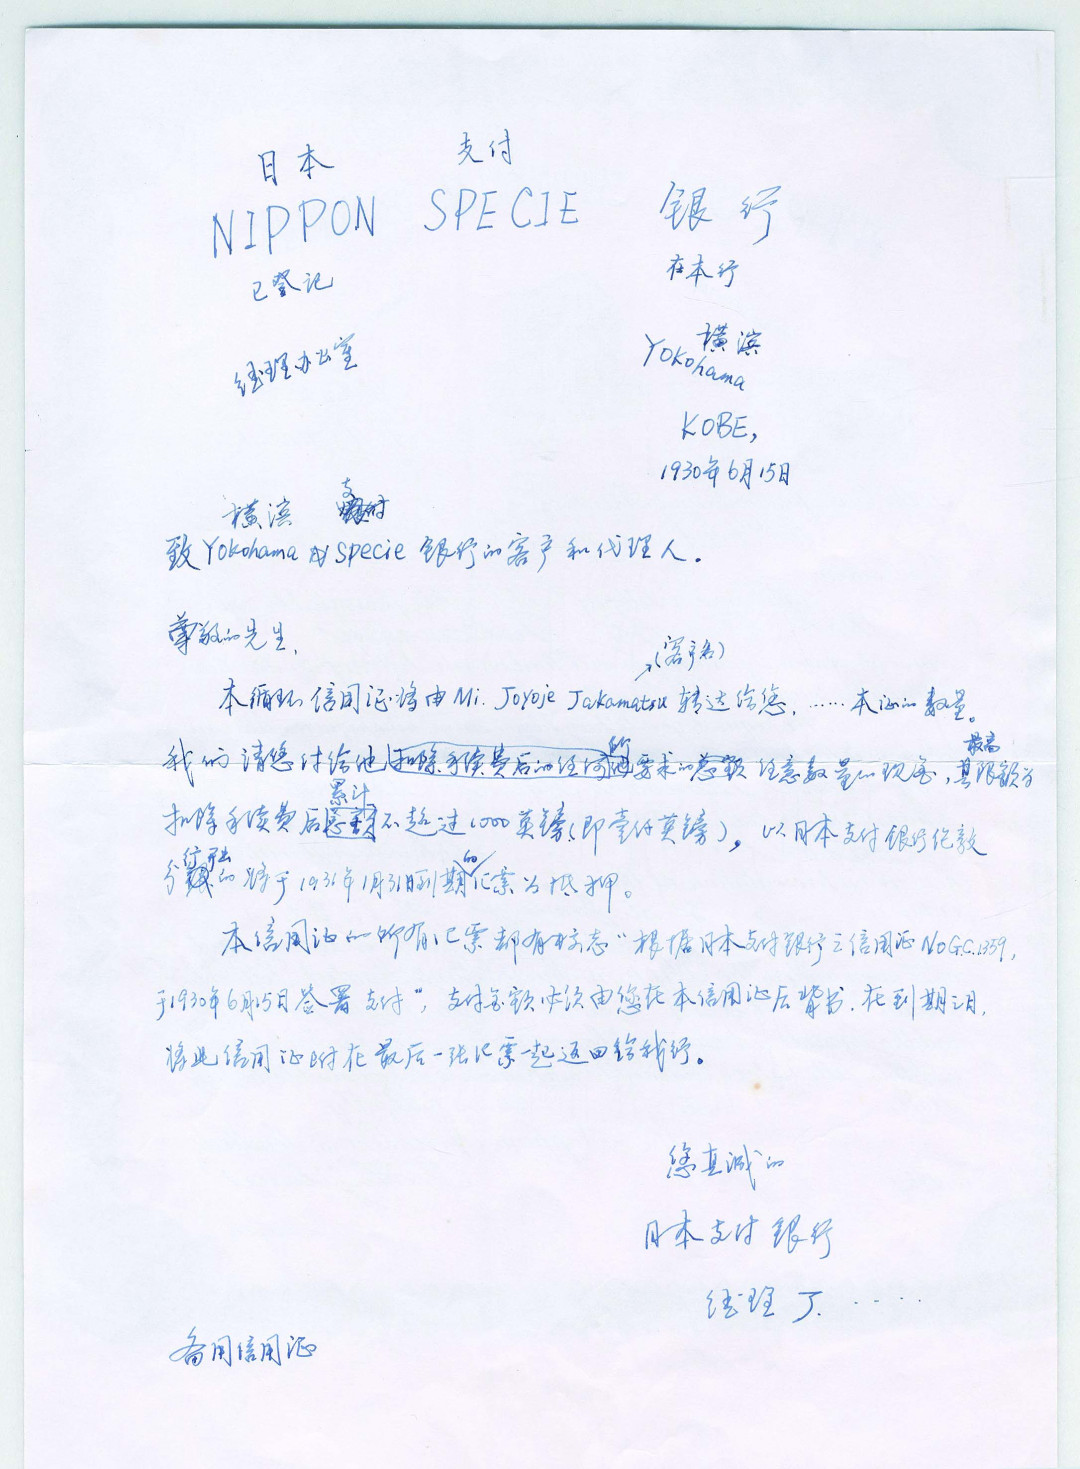 日本 支付
NIPPON SPECIE 银行
已登记 在本行
横滨
经理办公室 Yokohama
KOBE,
1930年6月15日
横滨 支付
致Yokohama Specie 银行的客户和代理人.
尊敬的先生,
(客户名)
本循环信用证将由 Mi. Joyoje Jakamatsu 转达给您, ……本证的数量。
所 最高
我们请您付给他扣除手续费后的任何他要求的总额任意数量的现金,其限额为
累计
扣除手续费后总额不超过1000英镑(即壹仟英镑)。以日本支付银行伦敦
行开出 的
分的将于1931年1月31日到期汇票为抵押。
本信用证的所有汇票都有标志“根据日本支付银行之信用证NoG.C.1359,
于1930年6月15日签署支付”, 支付金额必须由您在本信用证后背书.在到期之日,
将此信用证附在最后一张汇票一起返回给我行。
您真诚的
日本支付银行
经理 J. ....
备用信用证